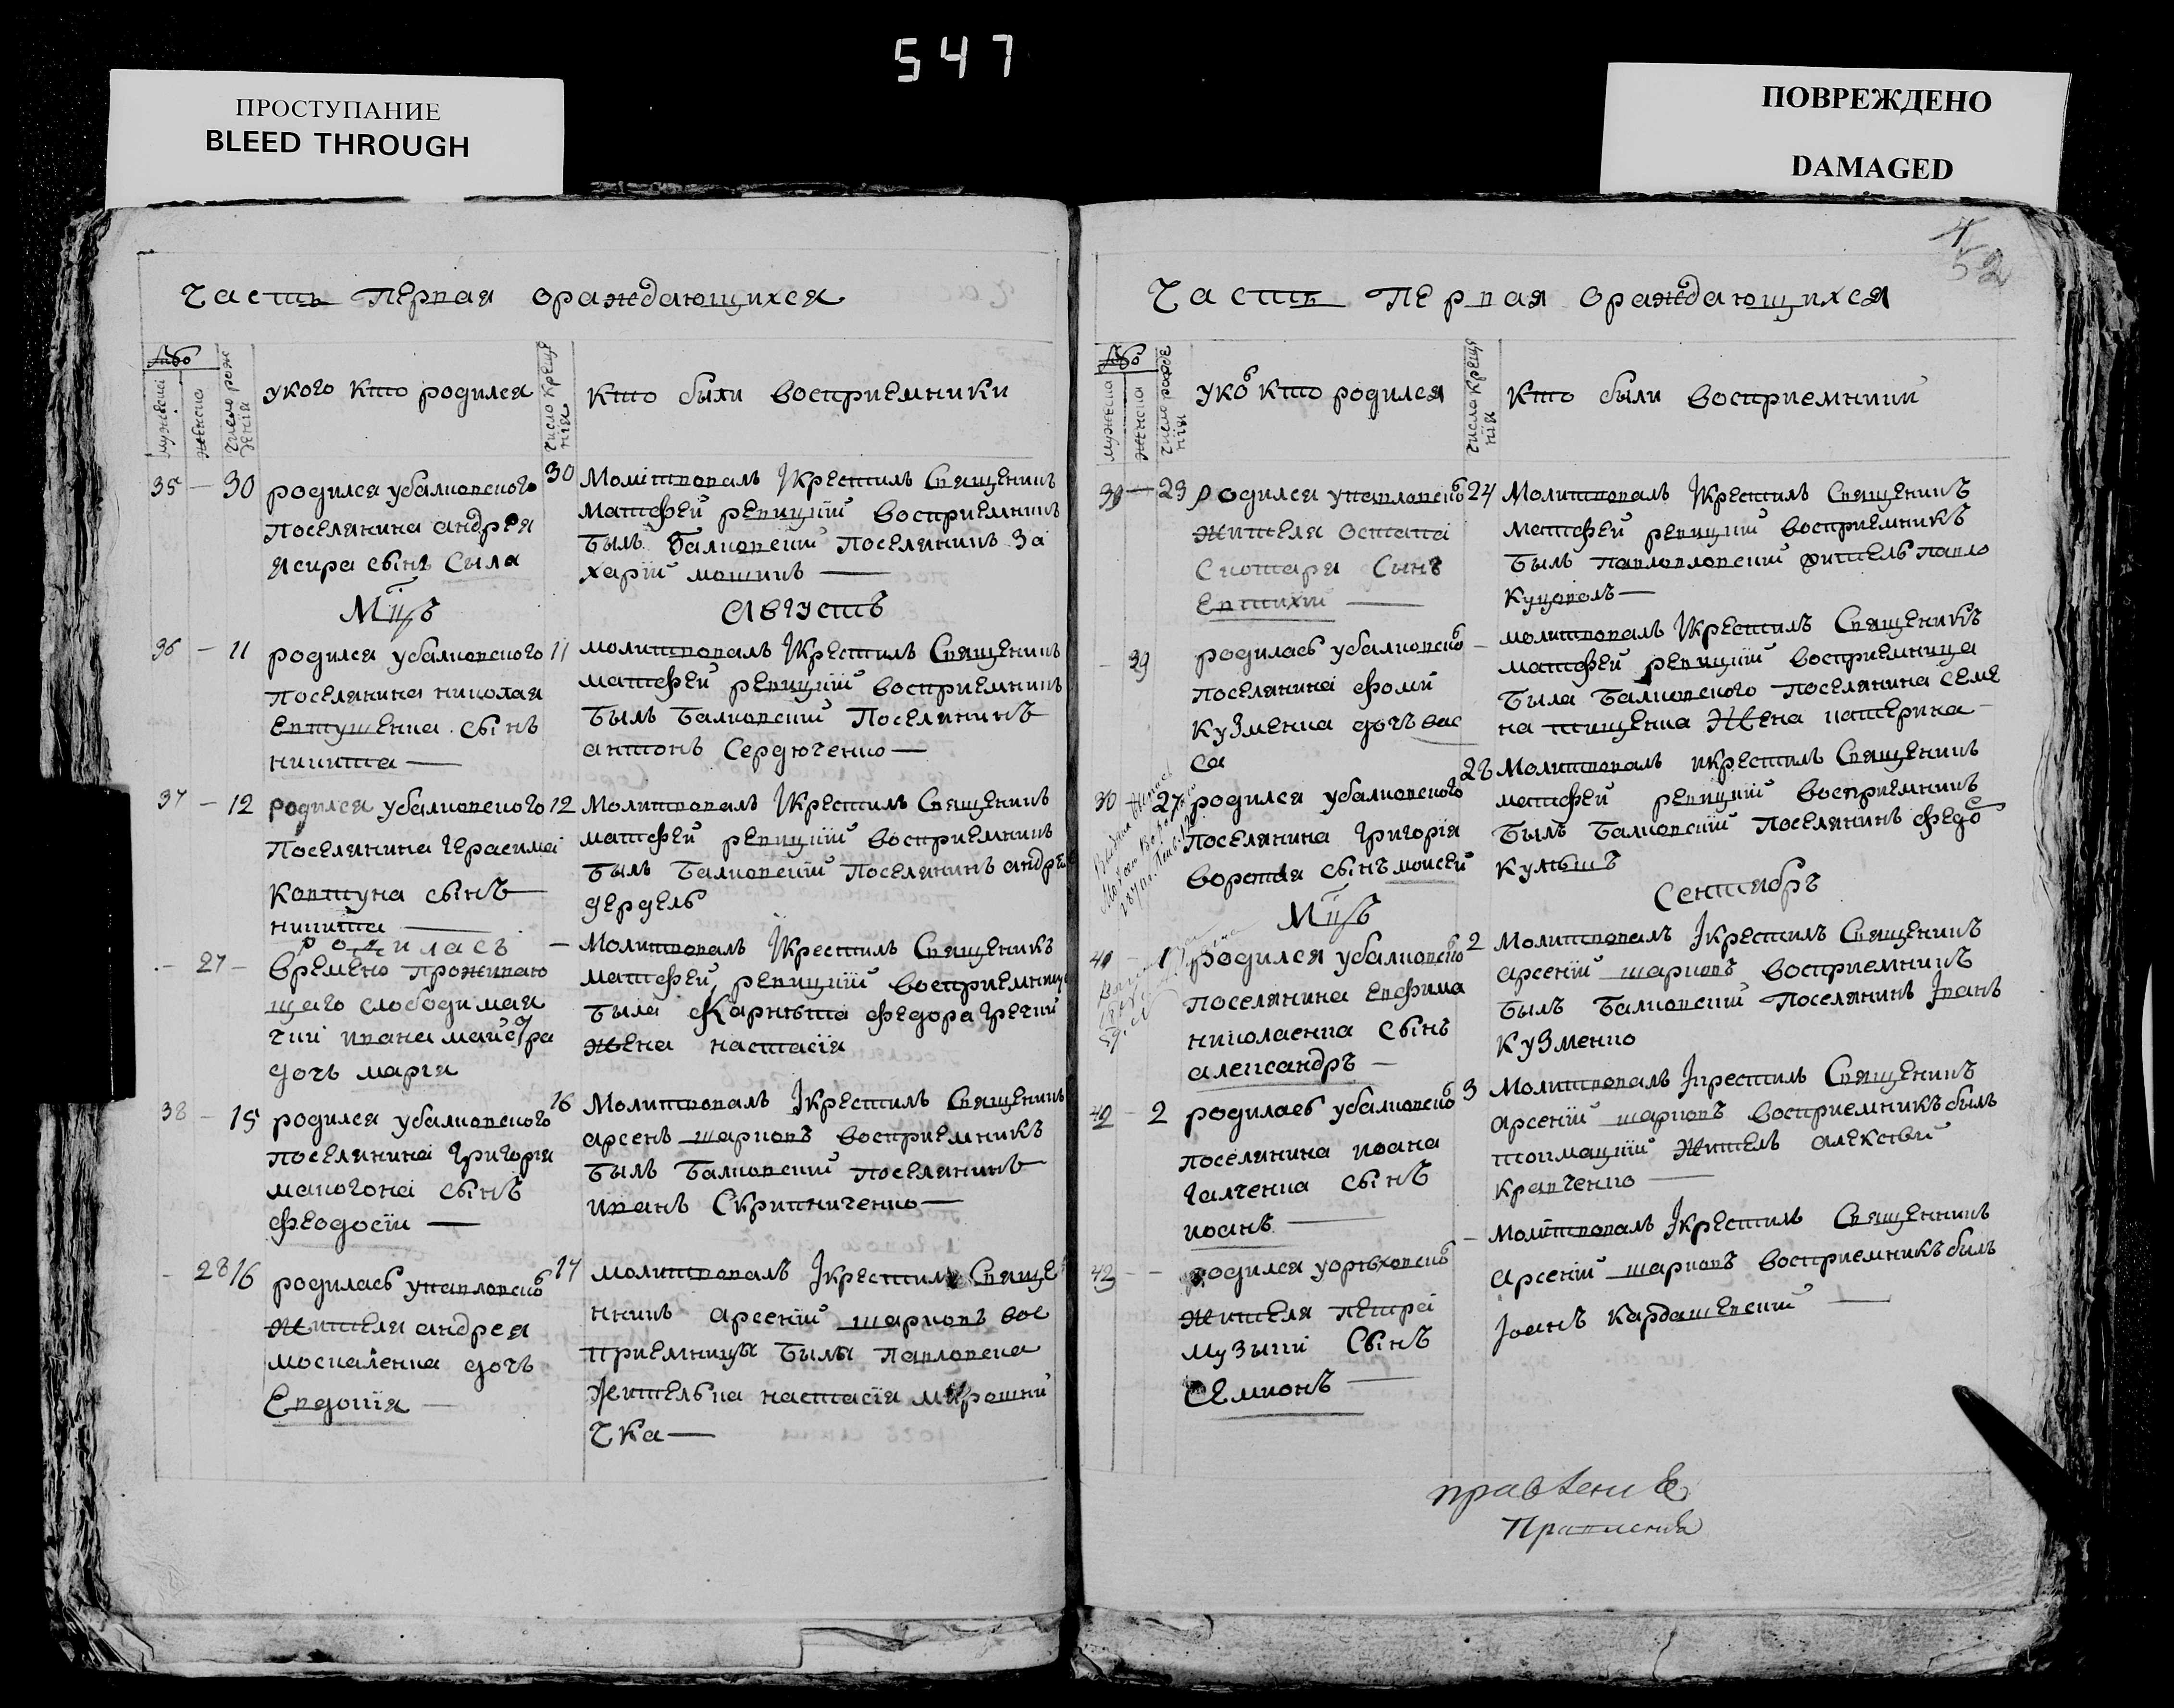 547
ПРОСТУПАНИЕ
BLEED THROUGH
ПОВРЕЖДЕНО
DAMAGED
Часть первая ораждающихся
укого кто родился
кто были восприемники
35 — 30 родился убалковского
поселянина андрея
сынъ Сыла
30 Молитвовалъ Iкрестилъ Священикъ
матфей ревицкий восприемникъ
былъ балковский поселянинъ За
харий мошинъ —
Мцъ Августъ
36 — 11 родился убалковского
поселянина николая
Евтушенка сынъ
никита —
11 молитвовалъ Iкрестилъ Священикъ
матфей ревицкий восприемникъ
былъ балковский Поселянинъ
антонъ Сердюченко —
37 — 12 родился убалковского
Поселянина Герасима
Ковтуна сынъ
никита —
12 Молитвовалъ Iкрестилъ Священикъ
матфей ревицкий восприемникъ
былъ балковский Поселянинъ андрей
дердель
— 27 — родилась
Времено проживаю
щаго слободи мая
чки ивана майстра
дочь мария
— Молитвовалъ Iкрестилъ Священикъ
матфей ревицкий восприемница
была федора
жена настасiя
38 — 15 родился убалковского
поселянина григорiя
макогона сынъ
феодосiи —
16 Молитвовалъ Iкрестилъ Священикъ
арсенъ шарковъ восприемникъ
былъ балковский поселянинъ
иванъ Скрипниченко —
— 28 16 родилась упавловског
жителя андрея
москаленка дочь
Евдокiя —
17 молитвовалъ Iкрестилъ Свяще
никъ арсенiй шарковъ вос
приемници были павловска
жителька настасiя мирошни
чка —
52
Часть первая ораждающихся
уког кто родился
кто были восприемники
39 — 23 родился упавловског
жителя остапа
Скотаря Сынъ
Евтихiй —
24 Молитвовалъ Iкрестилъ Священикъ
матфей ревицкий восприемникъ
былъ павловский житель павло
куцоволъ —
— 39 родилась убалковског
поселянина фоми
кузменка дочь вас
са
— молитвовалъ Iкрестилъ Священикъ
матфей ревицкий восприемница
была балковского поселянина семе
на тищенка жена катерина —
27 родился убалковского
поселянина григорiя
сынъ моисей
28 Молитвовалъ икрестилъ Священикъ
матфей ревицкий восприемникъ
былъ балковский поселянинъ федо
Мцъ Сентябръ
1 родился убалковског
поселянина Евфима
николаенка Сынъ
александръ —
2 Молитвовалъ Iкрестилъ Священикъ
арсенiй шарковъ восприемникъ
былъ балковский поселянинъ Iванъ
кузменко
2 родилась убалковског
поселянина иоана
галченка сынъ
иоанъ —
3 Молитвовалъ Iкрестилъ Священикъ
арсенiй шарковъ восприемникъ былъ
житель алексѣй
кравченко —
— — родился уорѣховског
жителя петра
музыки Сынъ
Семионъ —
— Молитвовалъ Iкрестилъ Священникъ
арсенiй шарковъ восприемникъ былъ
Iоанъ кардашевский —
правление